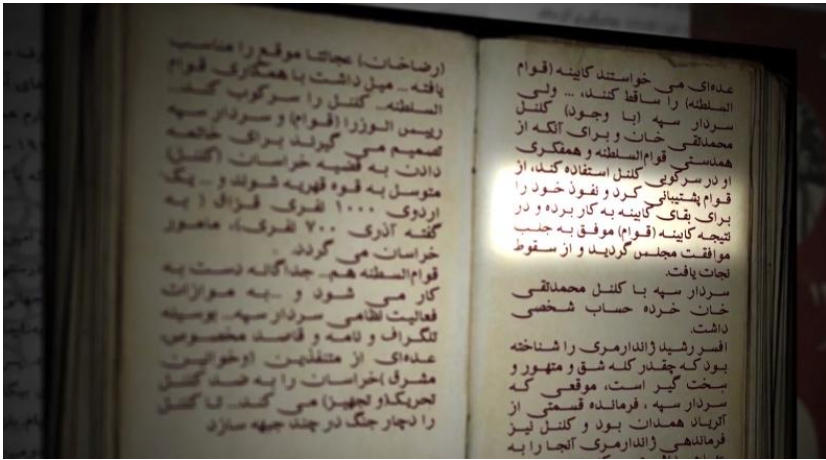 عده‌ای می خواستند کابینه (قوام
السلطنه) را ساقط کنند، ... ولی
سردار سپه (با وجود) کلنل
محمدتقی خان و برای آنکه از
همدستی قوام‌السلطنه و همفکری
او در سرکوبی کلنل استفاده کند، از
قوام پشتیبانی کرد و نفوذ خود را
برای بقای کابینه به کار برده و در
نتیجه کابینه (قوام) موفق به جلب
موافقت مجلس گردید و از سقوط
نجات یافت.
سردار سپه با کلنل محمدتقی
خان خرده حساب شخصی
داشت.
افسر رشید ژاندارمری را شناخته
بود که چقدر کله شق و متهور و
سخت گیر است، موقعی که
سردار سپه ، فرمانده قسمتی از
آتریاد همدان بود و کلنل نیز
فرماندهی ژاندارمری آنجا را به
(رضاخان) عجالتا موقع را مناسب
یافته... میل داشت با همکاری قوام
السلطنه... کلنل را سرکوب کند...
رییس الوزرا (قوام) و سردار سپه
تصمیم می گیرند برای خاتمه
دادن به قضیه خراسان (کلنل)
متوسل به قوه قهریه شوند و ... یک
اردوی ۱۰۰۰ نفری قزاق ( به
گفته آذری ۷۰۰ نفری)، مامور
خراسان می گردد.
قوام‌السلطنه هم... جداگانه دست به
کار می شود و ...به موازات
فعالیت نظامی سردار سپه... بوسیله
تلگراف و نامه و قاصد مخصوص،
عده‌ای از متنفذین (وخوانین
مشرق )خراسان را به ضد کلنل
تحریک(و تجهیز) می کند... تا کلنل
را دچار جنگ در چند جبهه سازد